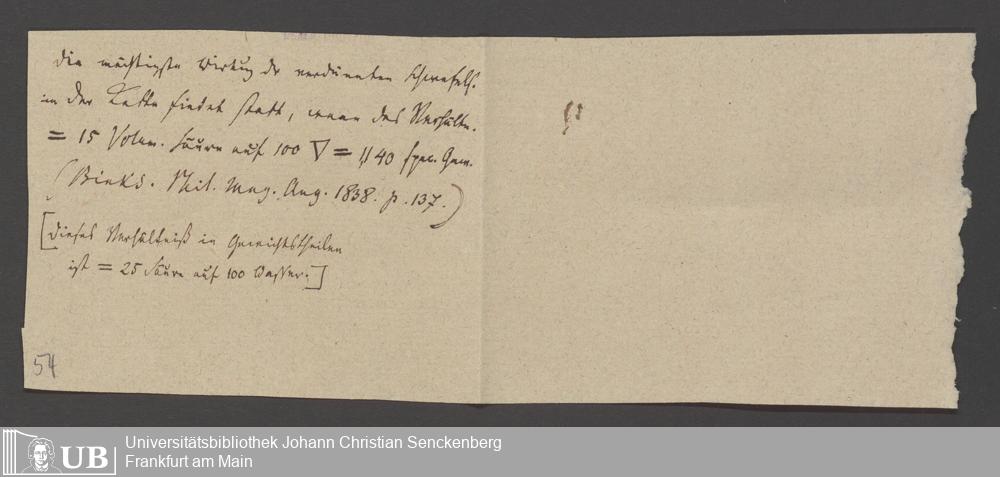 Die mächtigste Wirkung der verdünnten Schwefels.
in der Kette findet statt, wenn das Verhältn.
= 15 Volum. Säure auf 100 ▽ = 1,140 spec. Gew.
(Binks. Phil. Mag. Aug. 1838. p. 137.)
[Dieses Verhältniß in Gewichtstheilen
ist = 25 Säure auf 100 Wasser.]
54
UB
Universitätsbibliothek Johann Christian Senckenberg
Frankfurt am Main